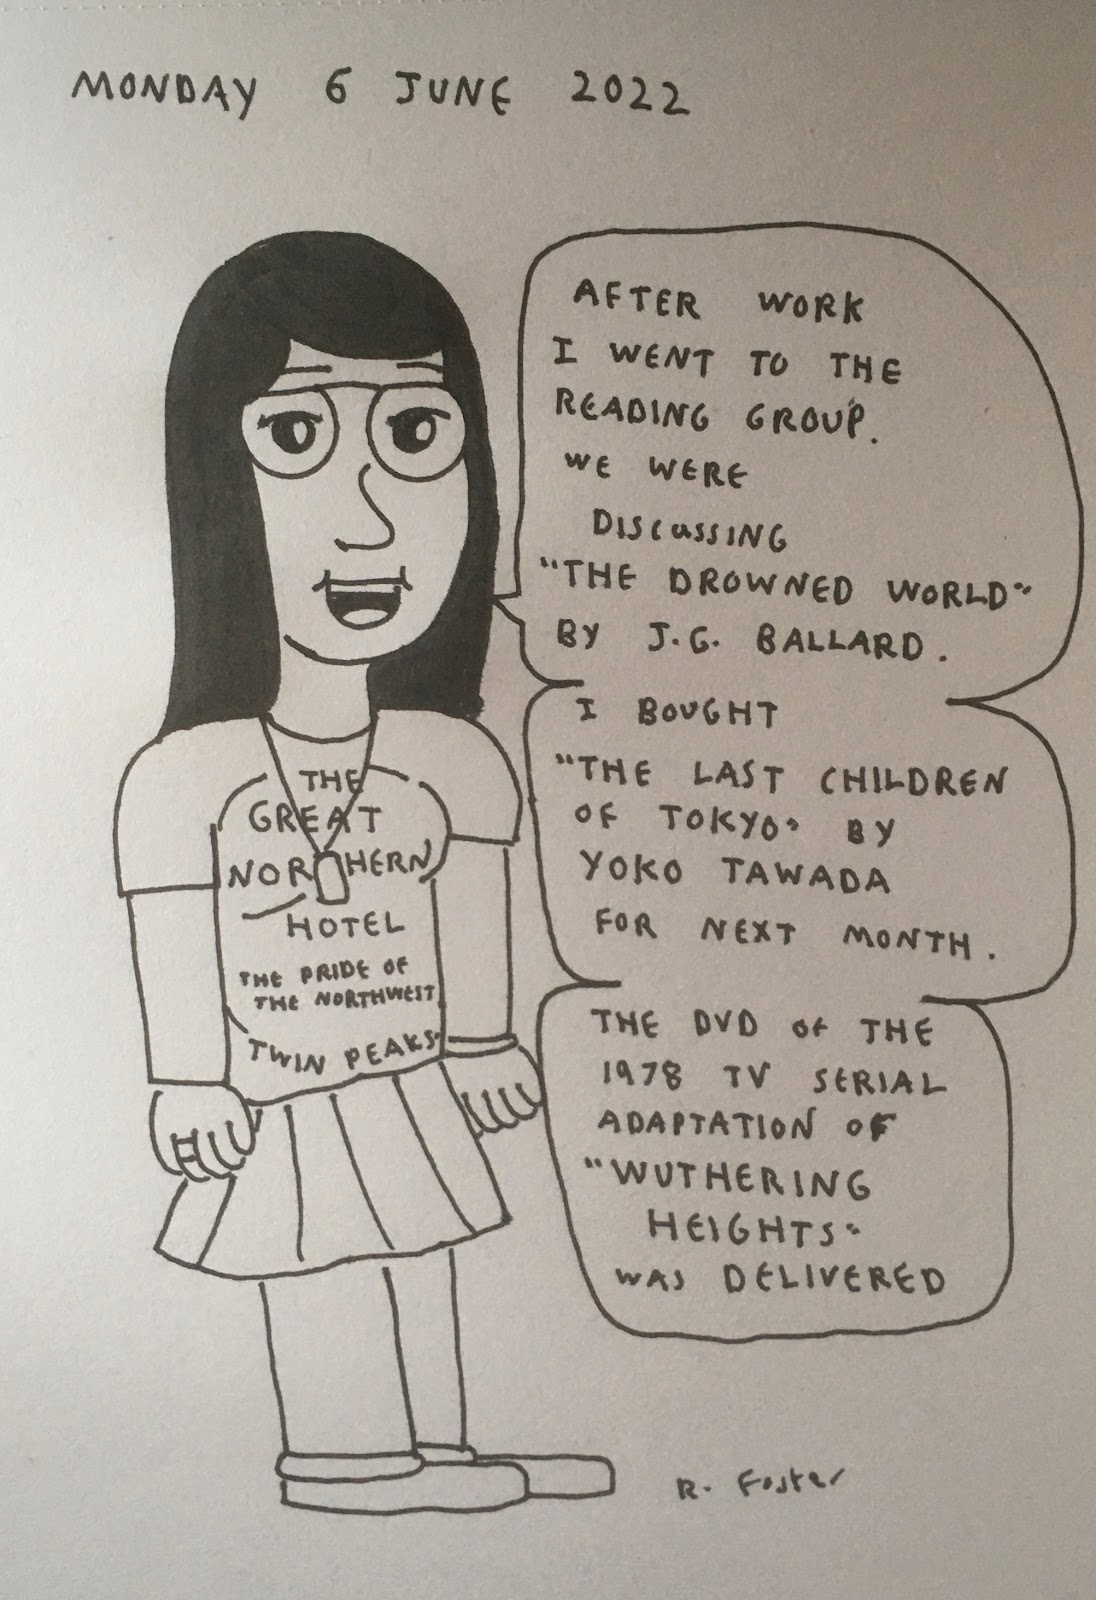 MONDAY 6 JUNE 2022
AFTER WORK
I WENT TO THE
READING GROUP.
WE WERE
DISCUSSING
"THE DROWNED WORLD"
BY J.G. BALLARD.
I BOUGHT
"THE LAST CHILDREN
OF TOKYO" BY
YOKO TAWADA
FOR NEXT MONTH.
THE DVD OF THE
1978 TV SERIAL
ADAPTATION OF
"WUTHERING
HEIGHTS"
WAS DELIVERED
THE
GREAT
NORTHERN
HOTEL
THE PRIDE OF
THE NORTHWEST
TWIN PEAKS
R. Foster